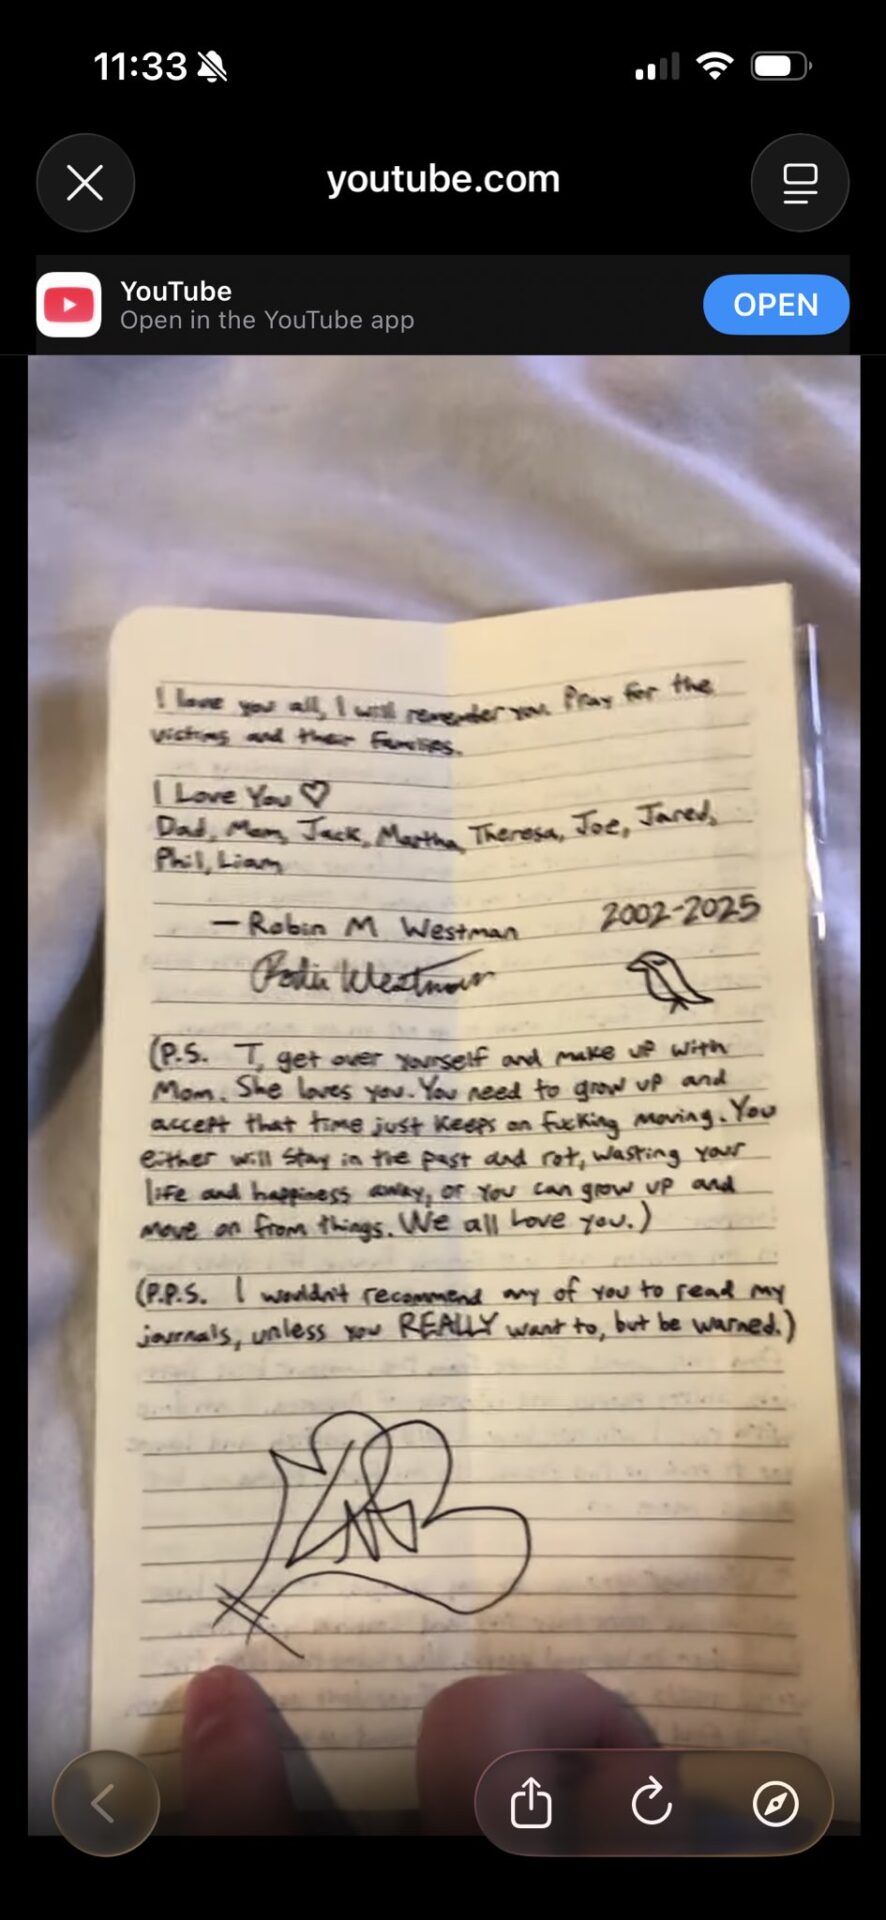 11:33
youtube.com
YouTube
Open in the YouTube app
OPEN
I love you all, I will remember you. Pray for the
victims and their families.
I Love You ♡
Dad, Mom, Jack, Martha, Theresa, Joe, Jared,
Phil, Liam
— Robin M Westman 2002-2025
Robin Westman
(P.S. T, get over yourself and make up with
Mom. She loves you. You need to grow up and
accept that time just keeps on fucking moving. You
either will stay in the past and rot, wasting your
life and happiness away, or you can grow up and
move on from things. We all love you.)
(P.P.S. I wouldn't recommend any of you to read my
journals, unless you REALLY want to, but be warned.)